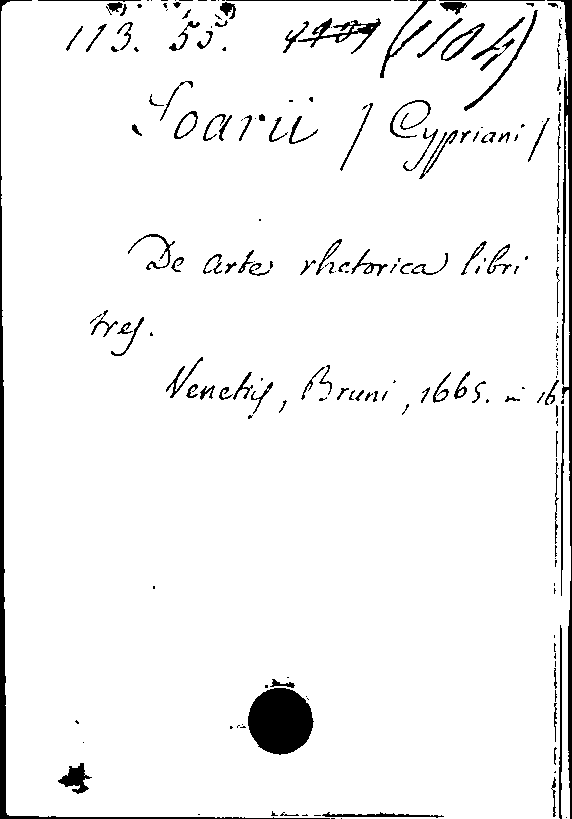 113. 55. (1104)
Soarii / Cypriani /
De arte rhetorica libri
tres.
Venetiis, Bruni, 1665. in 16º